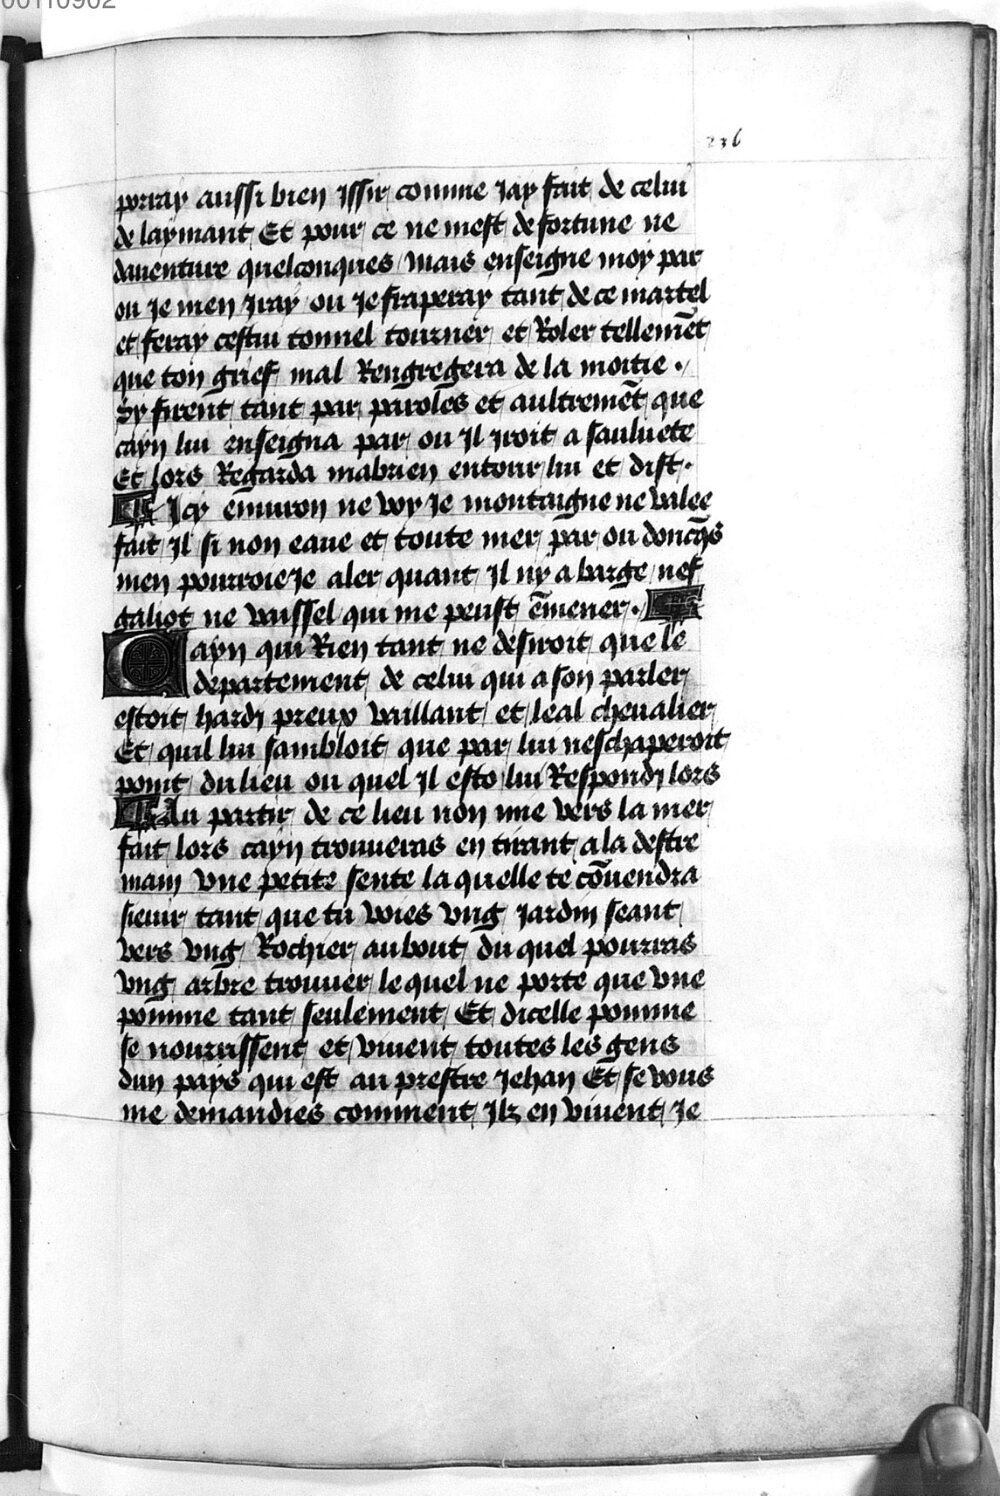 00110902
236
porray aussi bien Jssir comme Jay fait de celui
de laymant Et pour ce ne mest de fortune ne
dauenture quelconques mais enseigne moy par
ou Je men Jray ou Je fraperay tant de ce martel
et feray cestui tonnel tourner et Roler tellemēt
que ton grief mal Rengregera de la moitie .
Sy firent tant par paroles et aultremēt que
cayn lui enseigna par ou Il Jroit a sauluete
Et lors Regarda mabrien entour lui et dist .
Jcy enuiron ne voy Je montaigne ne valee
fait Il si non eaue et toute mer par ou doncq̄s
men pourroie Je aler quant Il ny a barge nef
galiot ne vaissel qui me peust ēmener .
Cayn qui Rien tant ne desiroit que le
departement de celui qui a son parler
estoit hardi preux vaillant et leal cheualier
Et quil lui sambloit que par lui neschaperoit
point du lieu ou quel Il esto lui Respondi lors
Au partir de ce lieu non mie vers la mer
fait lors cayn trouueras en tirant a la destre
main vne petite sente la quelle te cōuendra
sieuir tant que tu voies vng Jardin seant
vers vng Rochier au bout du quel pourras
vng arbre trouuer le quel ne porte que vne
pomme tant seulement Et dicelle pomme
se nourrissent et viuent toutes les gens
dun pays qui est au prestre Jehan Et se vous
me demandies comment Jlz en viuent Je